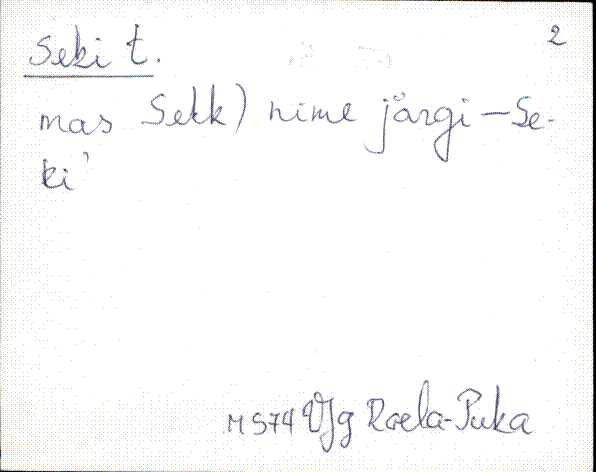 Seki t. 2
mas Sekk) nime järgi - Se-
ki'
MS74 VJg Roela-Puka